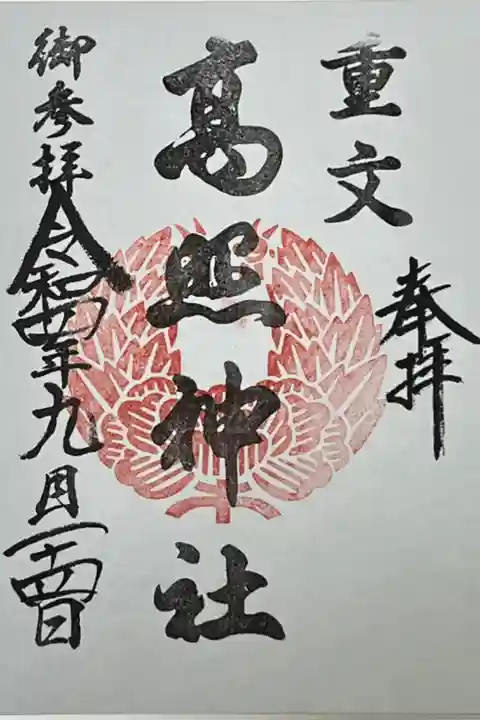 重文
奉拝
高照神社
御参拝 令和四年九月二十四日